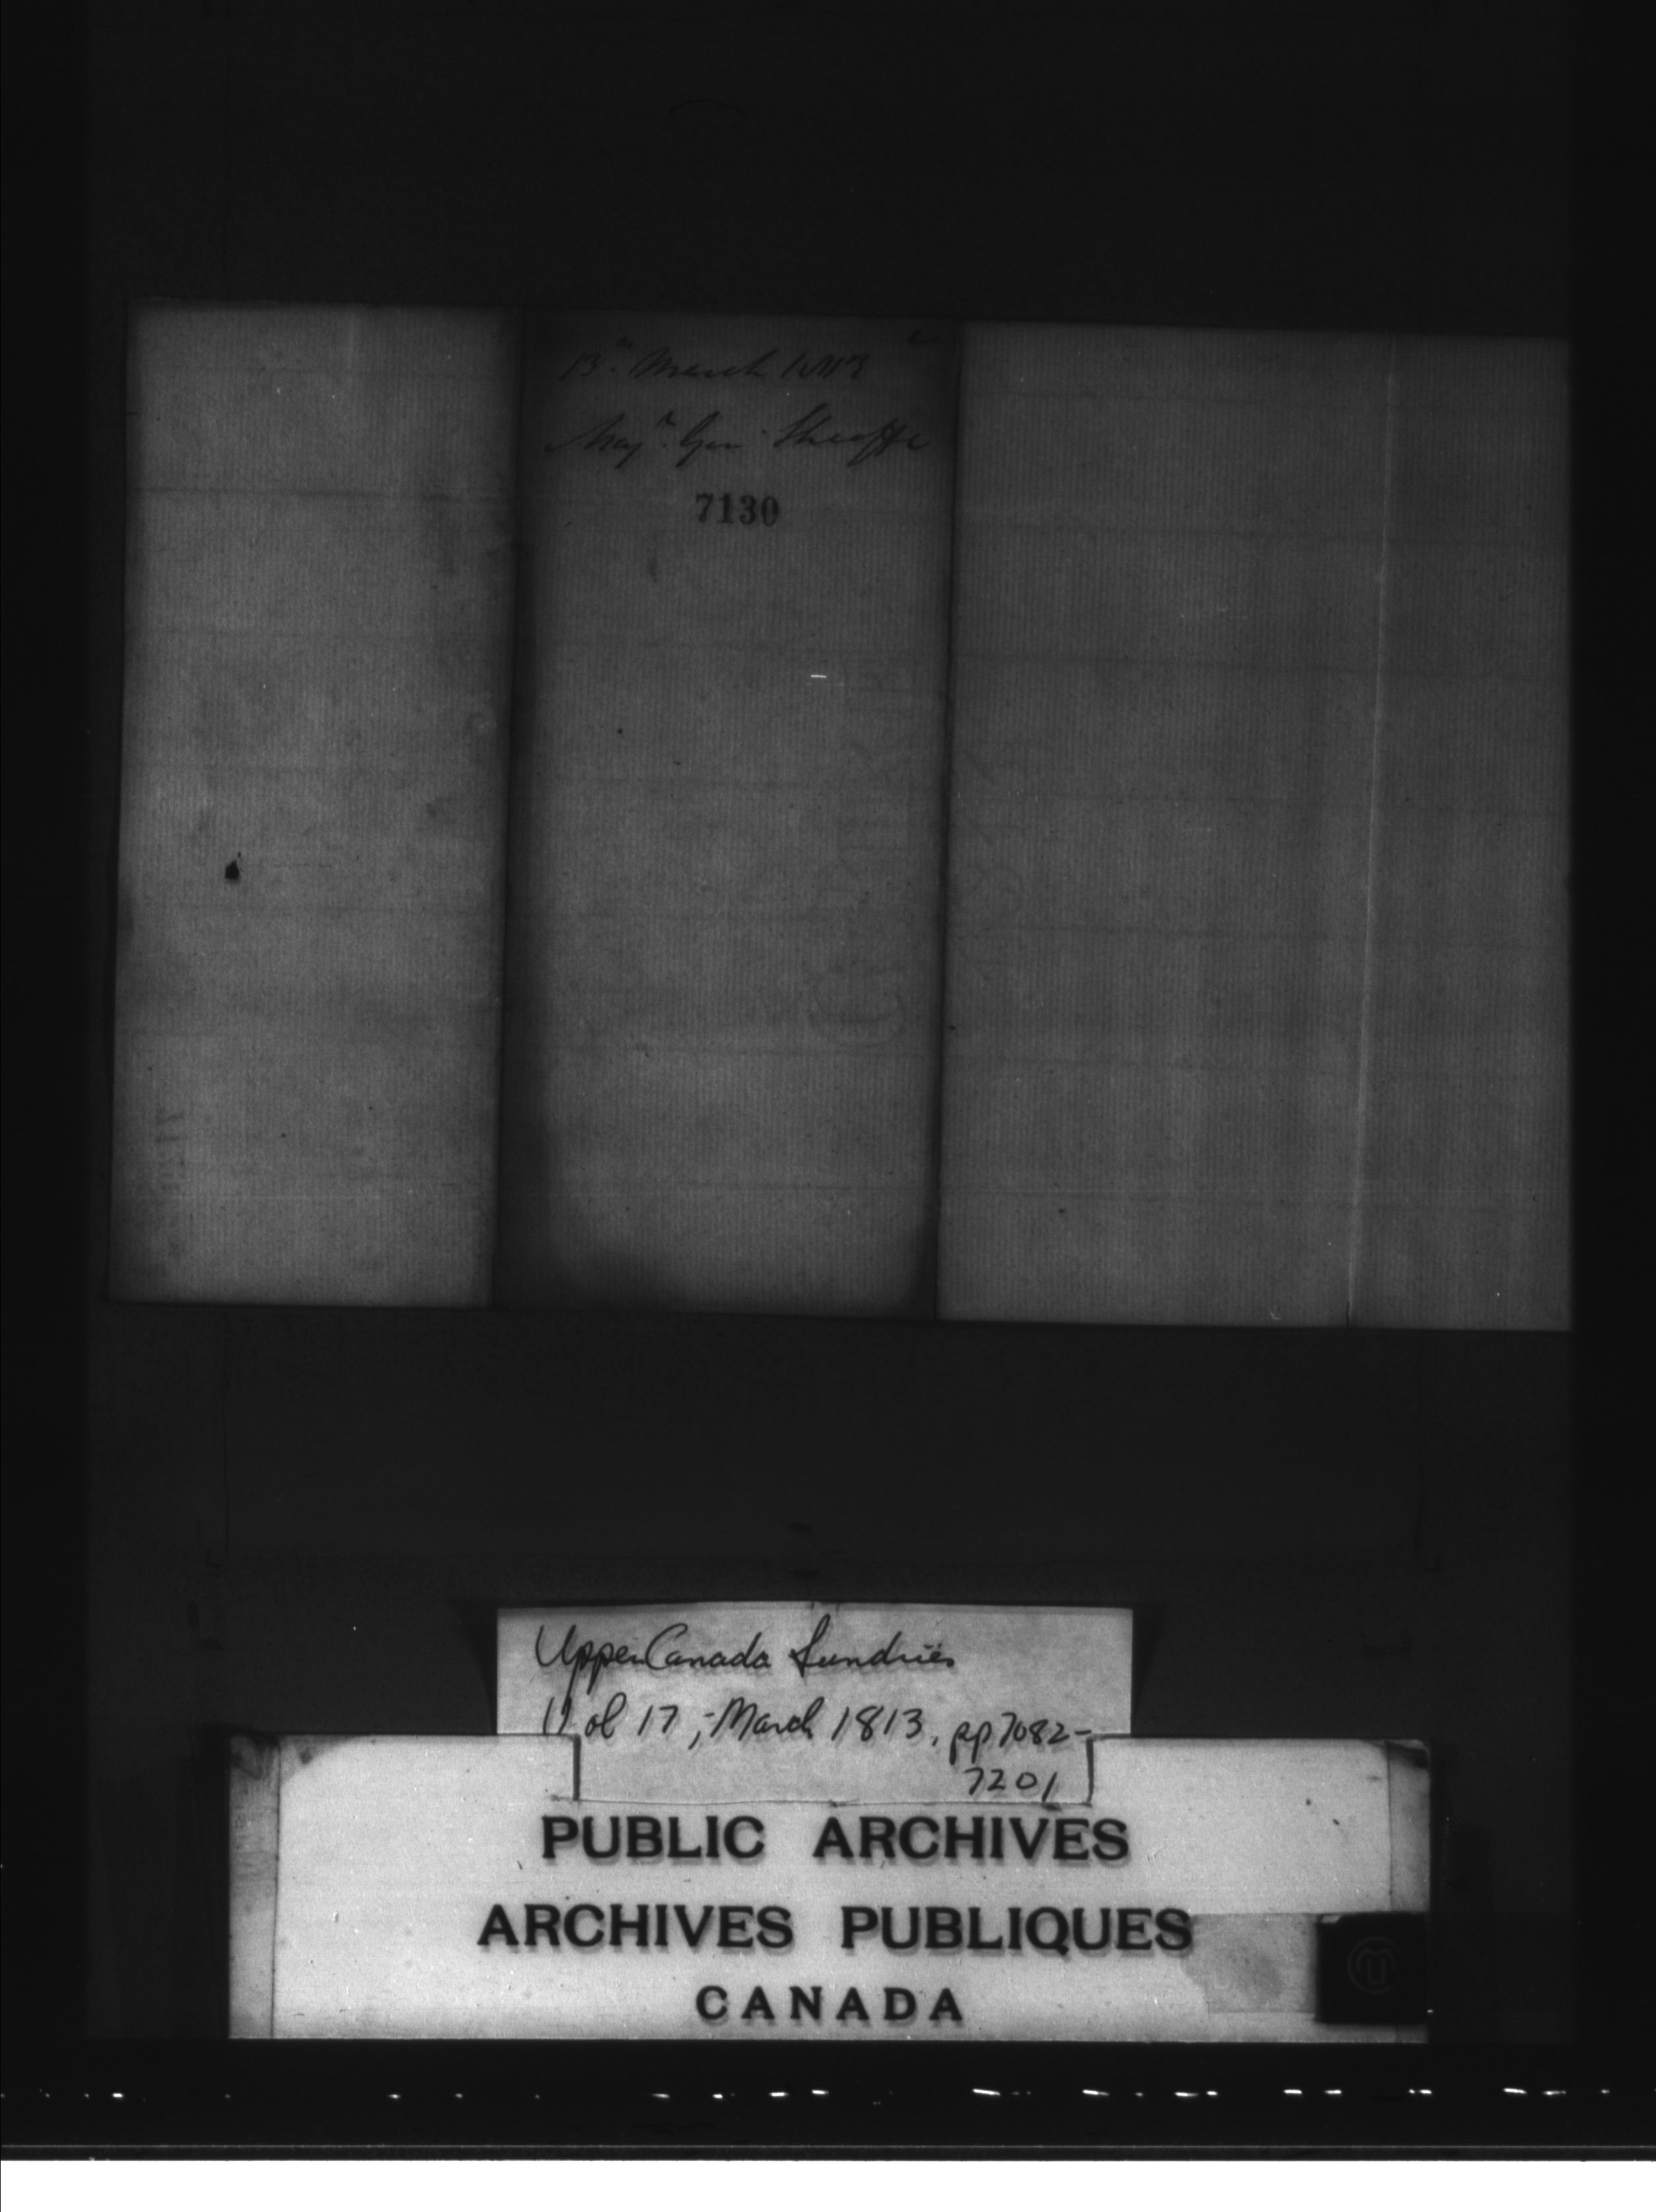 13th March 1813
Majr. Gen. Sheaffe
7130
Upper Canada Sundries
Vol 17, - March 1813, pp 7082-
7201
PUBLIC ARCHIVES
ARCHIVES PUBLIQUES
CANADA